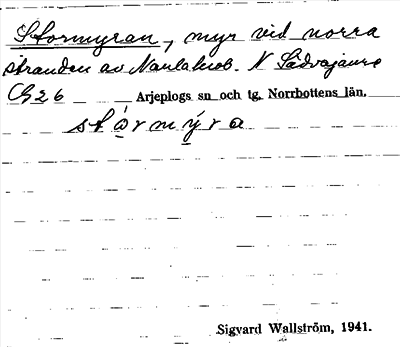 Stormyran, myr vid norra
stranden av Naulaluob. N Sädvajaure
G26 Arjeplogs sn och tg. Norrbottens län.
stårmýra
Sigvard Wallström, 1941.